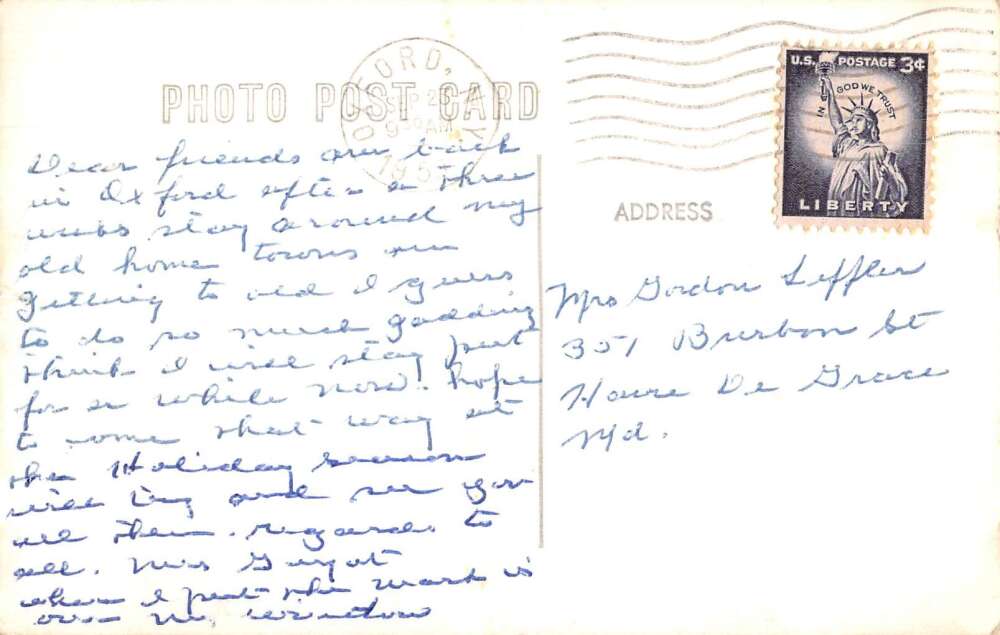 PHOTO POST CARD
OXFORD,
SEP 26
9 AM
195
U.S. POSTAGE 3¢
IN GOD WE TRUST
LIBERTY
ADDRESS
Dear friends am back
in Oxford after a three
weeks stay around my
old home towns am
getting to old I guess
to do so much gadding
think I will stay put
for a while now. hope
to come that way at
the Holiday season
will try and see you
all then. regards to
all. Mrs
where I put the mark is
over my window
Mrs Gordon Leffler
351 Burbon St
Havre De Grace
Md.